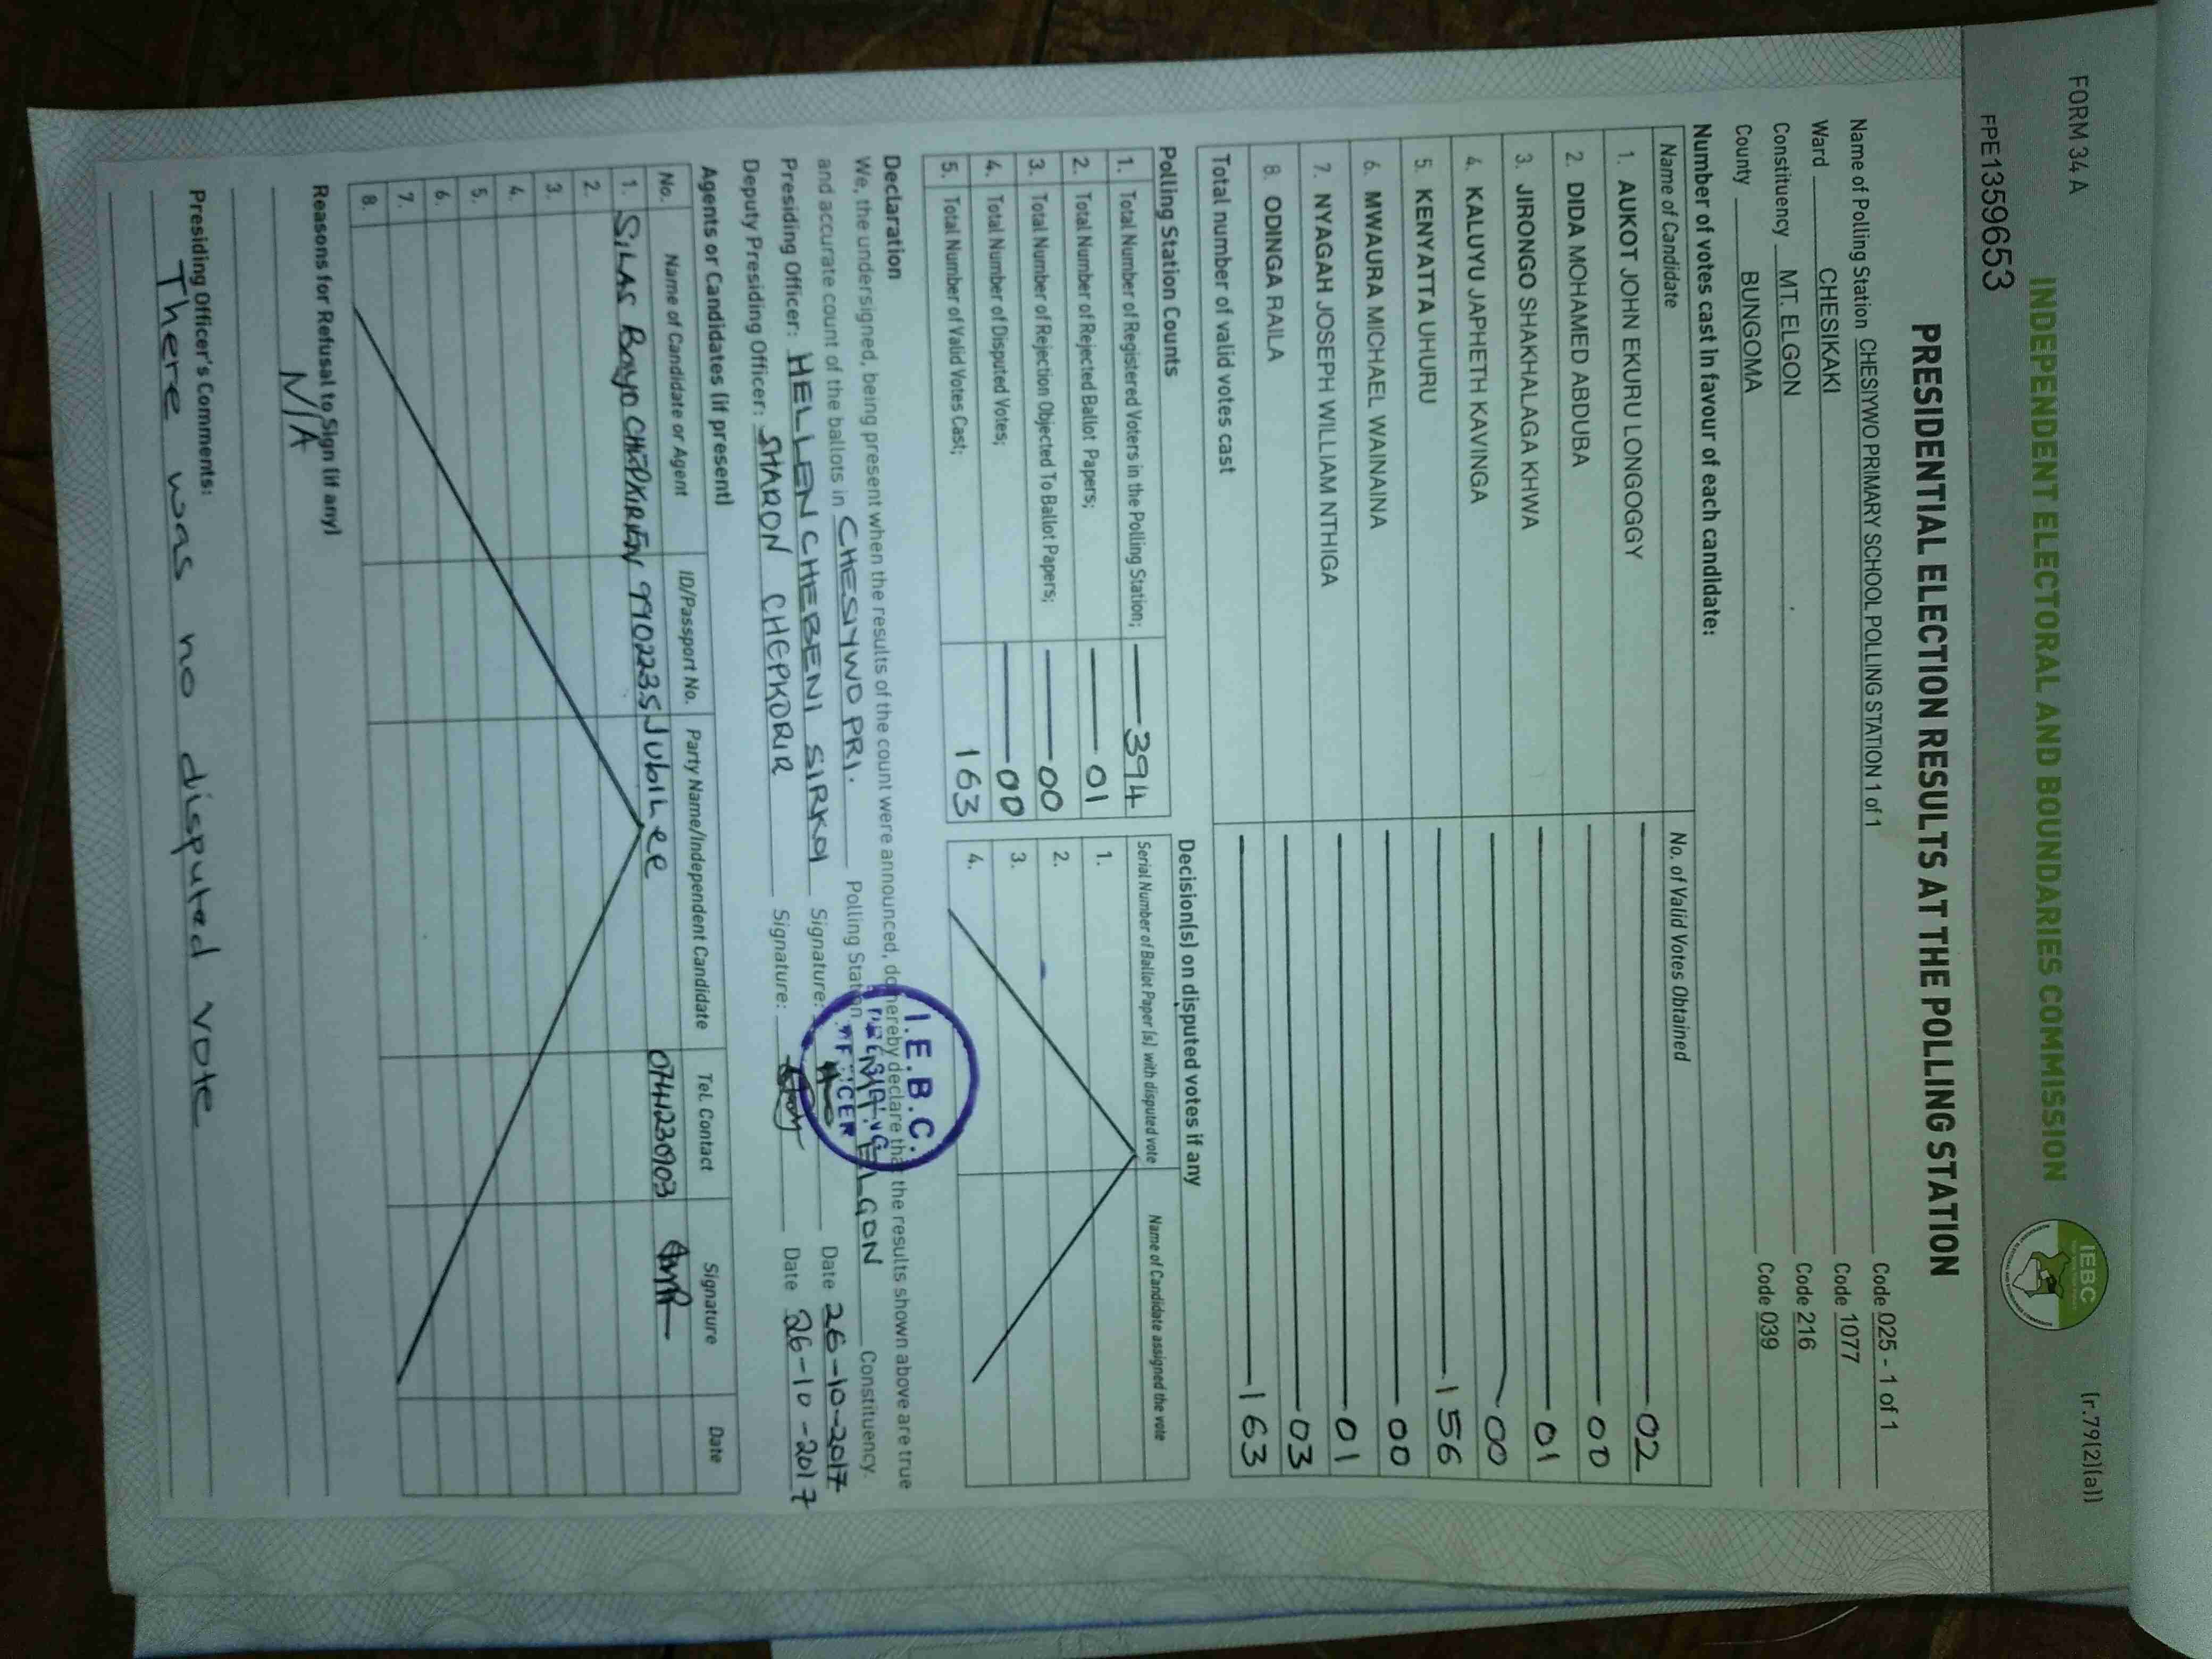 FORM 34 A
(r.79(2)(a))
INDEPENDENT ELECTORAL AND BOUNDARIES COMMISSION
IEBC
FPE1359653
PRESIDENTIAL ELECTION RESULTS AT THE POLLING STATION
Name of Polling Station CHESIYWO PRIMARY SCHOOL POLLING STATION 1 of 1 Code 025 - 1 of 1
Ward CHESIKAKI Code 1077
Constituency MT. ELGON Code 216
County BUNGOMA Code 039
Number of votes cast in favour of each candidate:
Name of Candidate No. of Valid Votes Obtained
1. AUKOT JOHN EKURU LONGOGGY 02
2. DIDA MOHAMED ABDUBA 00
3. JIRONGO SHAKHALAGA KHWA 01
4. KALUYU JAPHETH KAVINGA 00
5. KENYATTA UHURU 156
6. MWAURA MICHAEL WAINAINA 00
7. NYAGAH JOSEPH WILLIAM NTHIGA 01
8. ODINGA RAILA 03
Total number of valid votes cast 163
Polling Station Counts
1. Total Number of Registered Voters in the Polling Station; 394
2. Total Number of Rejected Ballot Papers; 01
3. Total Number of Rejection Objected To Ballot Papers; 00
4. Total Number of Disputed Votes; 00
5. Total Number of Valid Votes Cast; 163
Decision(s) on disputed votes if any
Serial Number of Ballot Paper (s) with disputed vote Name of Candidate assigned the vote
1.
2.
3.
4.
Declaration
We, the undersigned, being present when the results of the count were announced, do hereby declare that the results shown above are true
and accurate count of the ballots in CHESIYWO PRI. Polling Station MT ELGON Constituency.
Presiding Officer: HELLEN CHEBENI SIRKOI Signature: Date 26-10-2017
Deputy Presiding Officer: SHARON CHEPKORIR Signature: Date 26-10-2017
I.E.B.C.
PRESIDING
OFFICER
Agents or Candidates (if present)
No. Name of Candidate or Agent ID/Passport No. Party Name/Independent Candidate Tel. Contact Signature Date
1. SILAS Boiyo CHEPKIRIEN 99022355 JubiLee 0714230903
2.
3.
4.
5.
6.
7.
8.
Reasons for Refusal to Sign (if any)
N/A
Presiding Officer's Comments:
There was no disputed vote